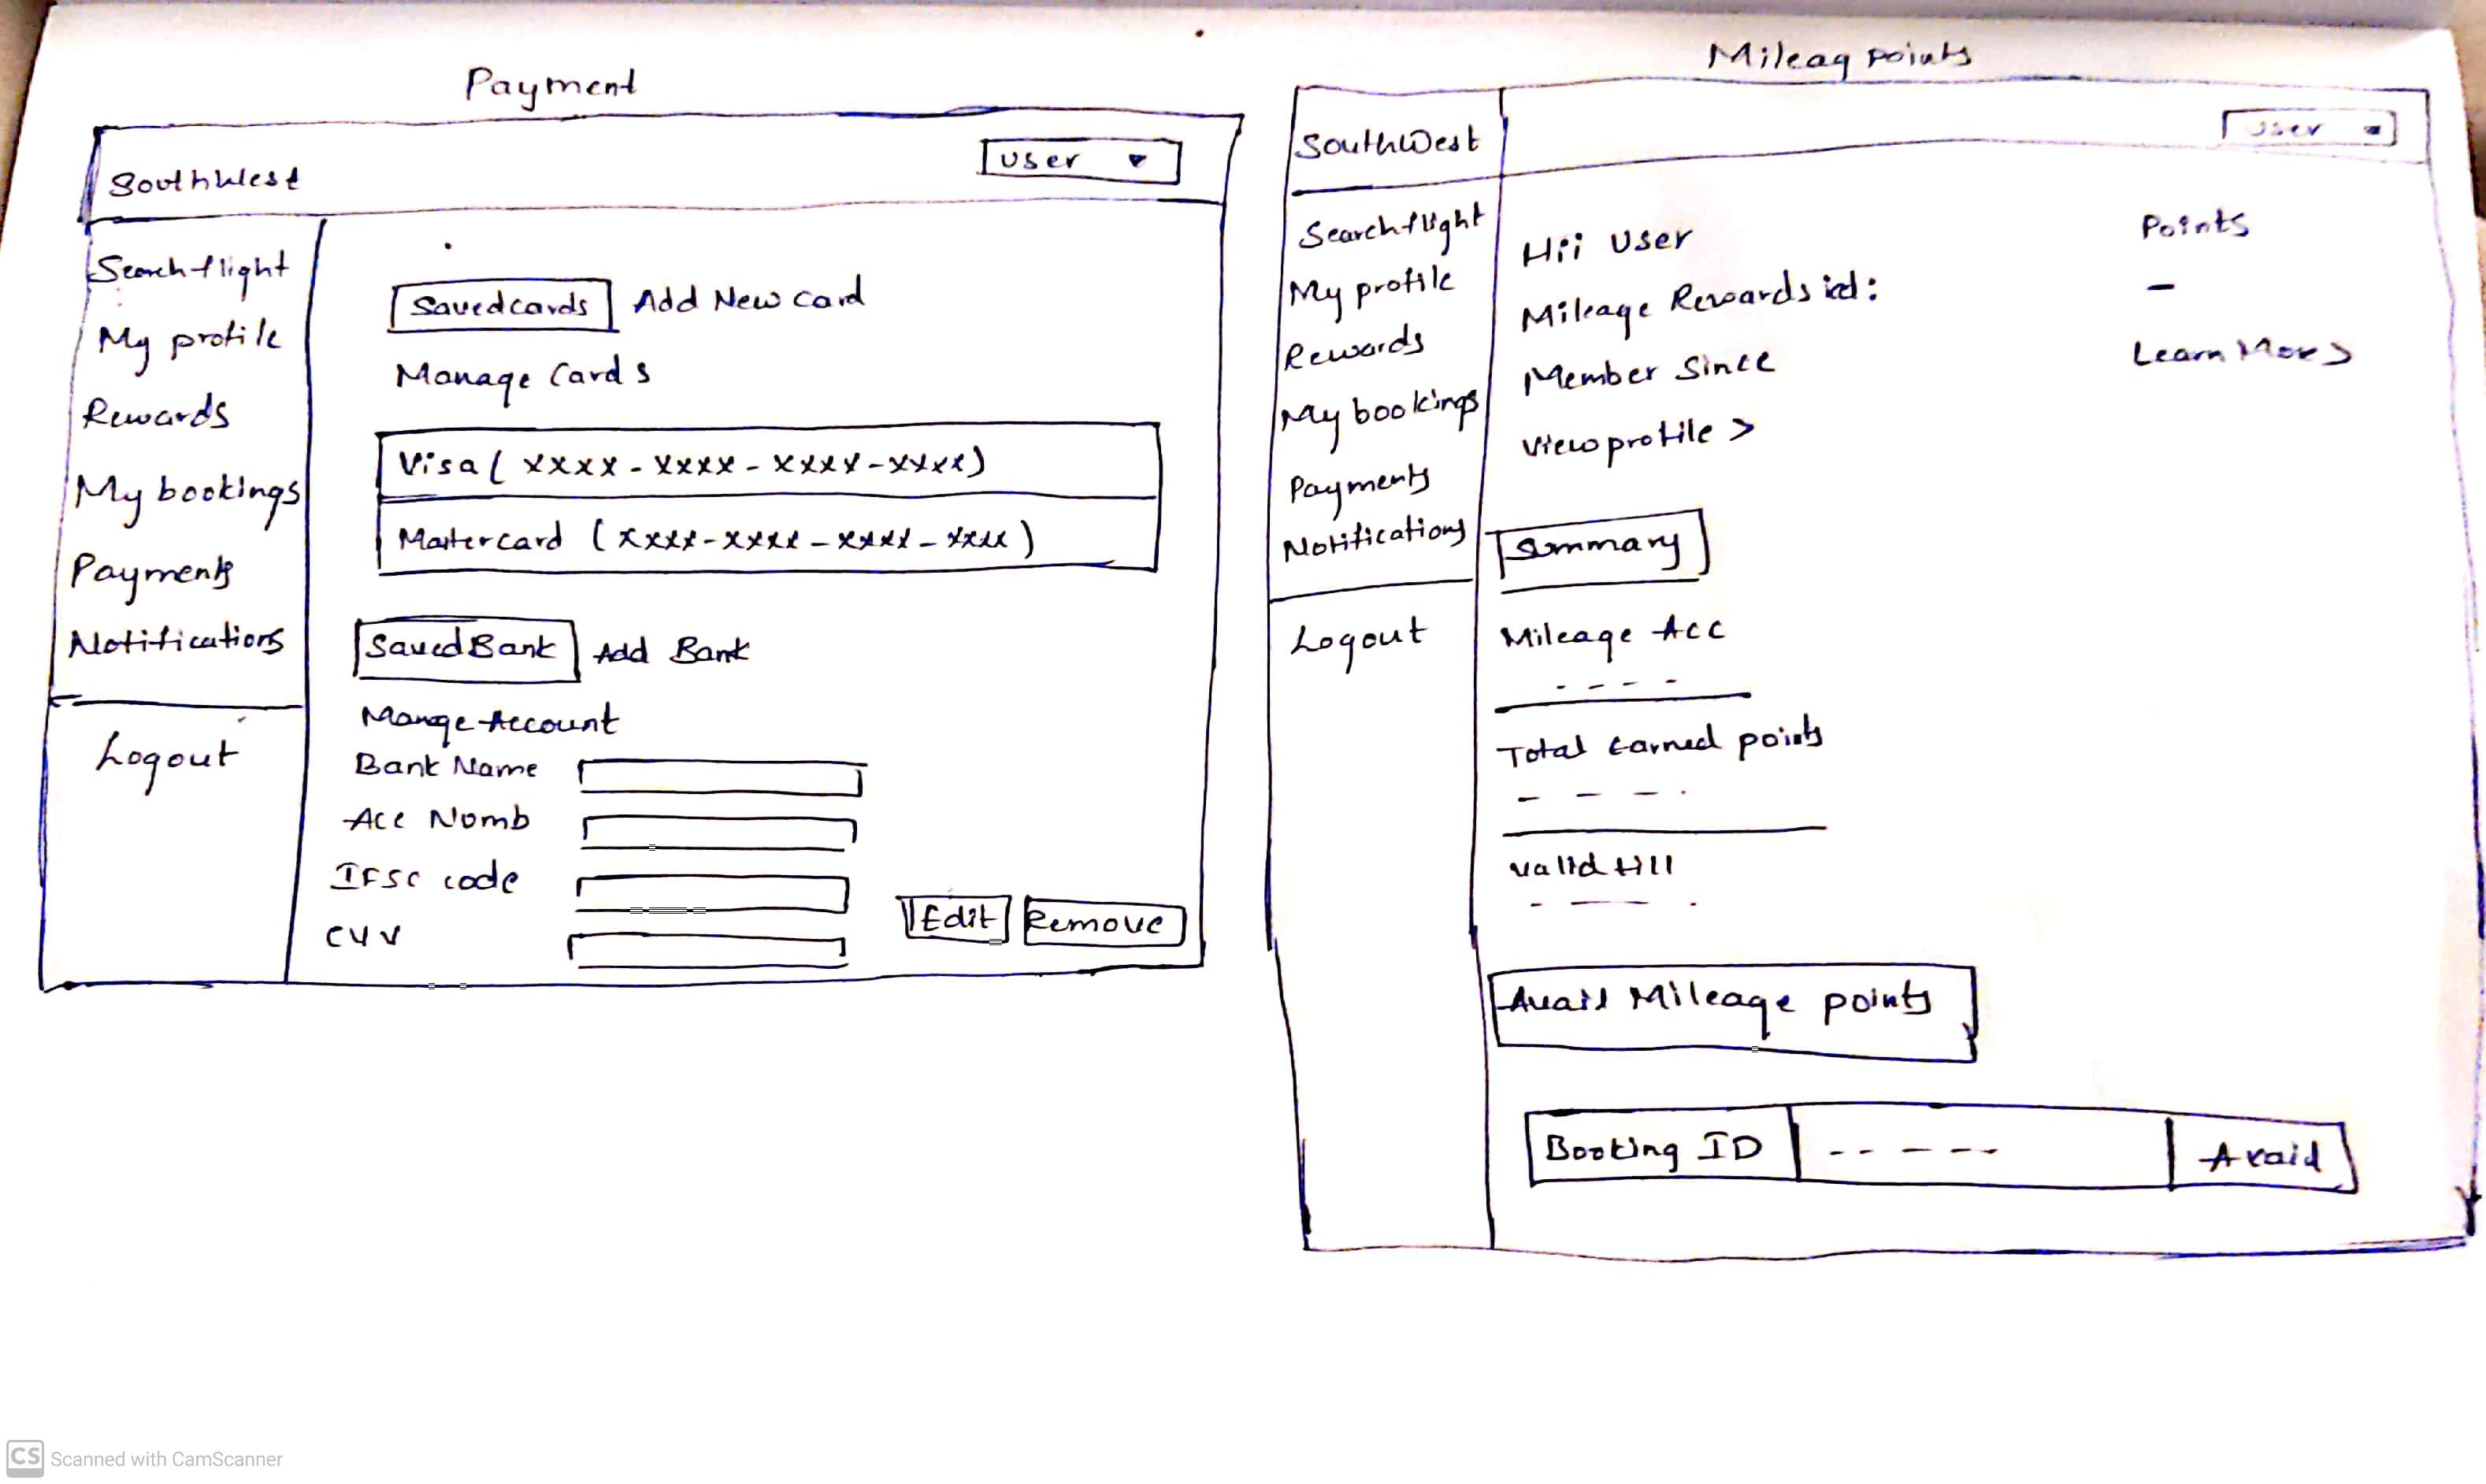 Payment
SouthWest
User
Search flight
My profile
Rewards
My bookings
Payments
Notifications
Logout
Saved cards Add New card
Manage Cards
Visa ( xxxx - xxxx - xxxx - xxxx )
Mastercard ( xxxx - xxxx - xxxx - xxxx )
Saved Bank Add Bank
Mange Account
Bank Name
Acc Nomb
IFSC code
CVV
Edit Remove
Mileag points
SouthWest
User
Search flight
My profile
Rewards
My bookings
Payments
Notifications
Logout
Hii User
Mileage Rewards id:
Member Since
View profile >
Points
-
Learn More >
Summary
Mileage Acc
- - - -
Total Earned points
- - - -
Valid till
- - -
Avail Mileage points
Booking ID - - - - - Avail
CS Scanned with CamScanner